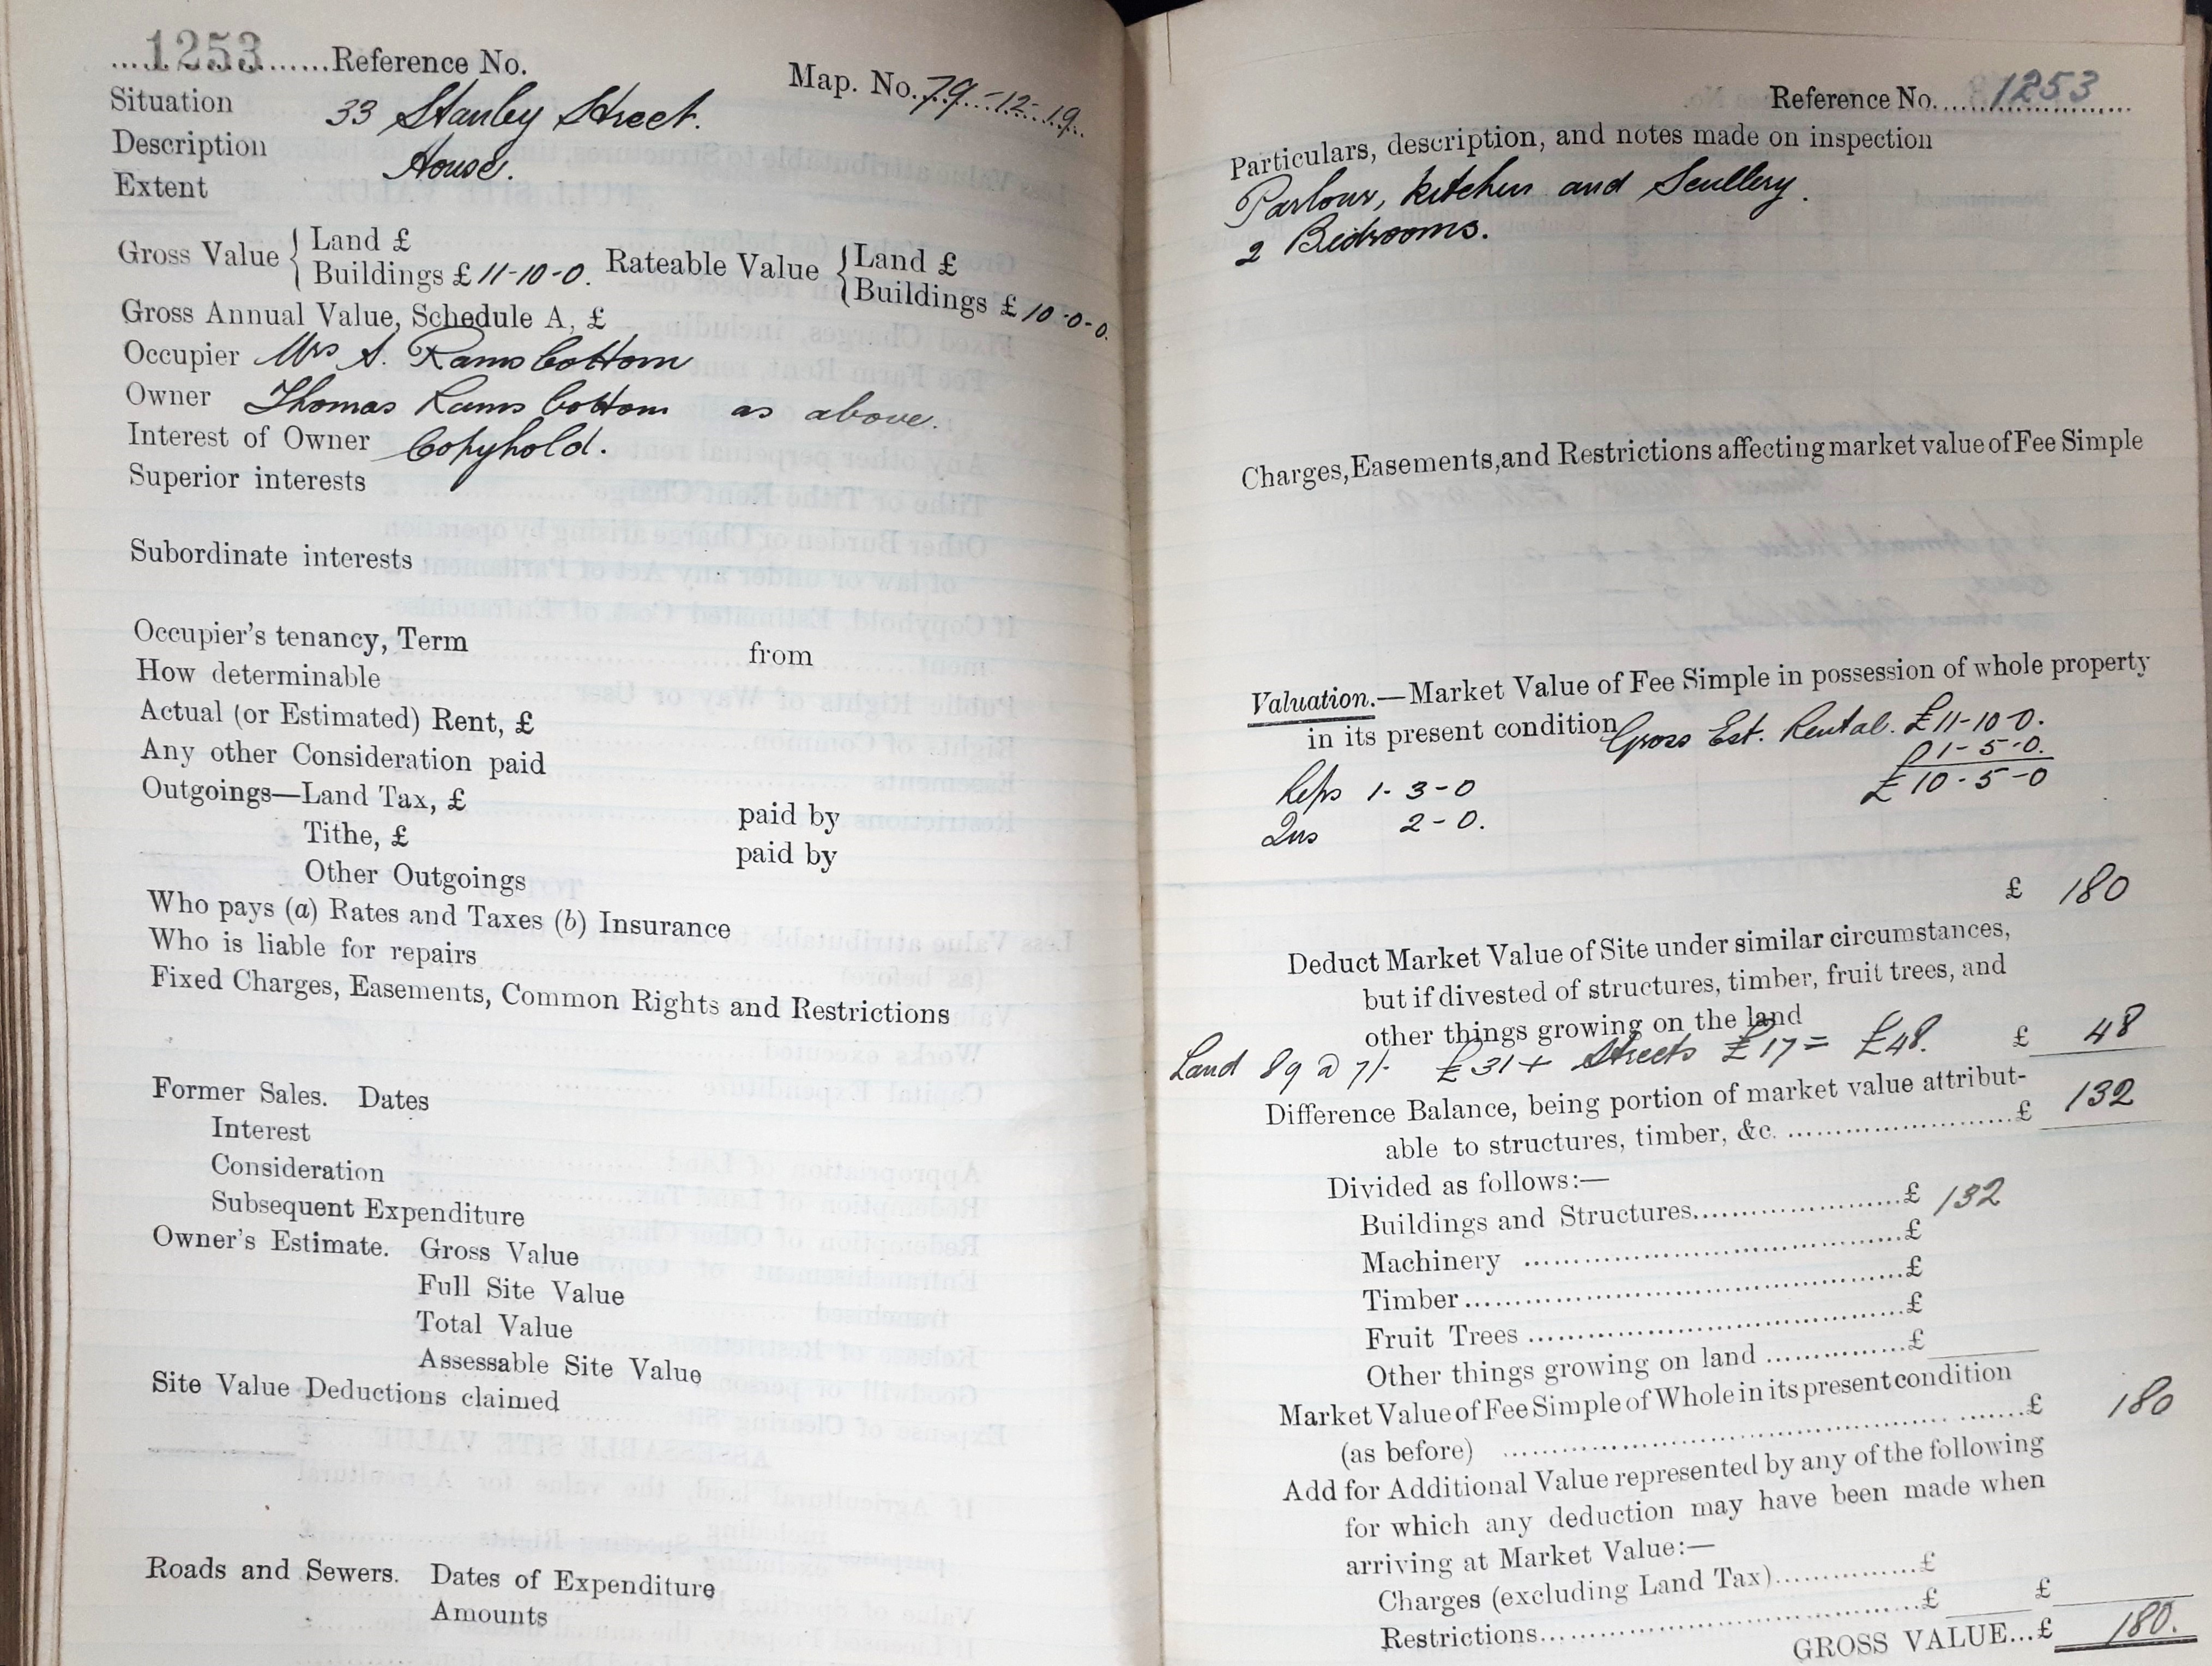 ...1253......Reference No.
Map. No. 79-12-19.
Situation 33 Stanley Street.
Description House.
Extent
Gross Value { Land £
Buildings £ 11-10-0. Rateable Value { Land £
Buildings £ 10-0-0.
Gross Annual Value, Schedule A, £
Occupier Mrs S. Ramsbottom
Owner Thomas Ramsbottom as above.
Interest of Owner Copyhold.
Superior interests
Subordinate interests
Occupier's tenancy, Term from
How determinable
Actual (or Estimated) Rent, £
Any other Consideration paid
Outgoings—Land Tax, £ paid by
Tithe, £ paid by
Other Outgoings
Who pays (a) Rates and Taxes (b) Insurance
Who is liable for repairs
Fixed Charges, Easements, Common Rights and Restrictions
Former Sales. Dates
Interest
Consideration
Subsequent Expenditure
Owner's Estimate. Gross Value
Full Site Value
Total Value
Assessable Site Value
Site Value Deductions claimed
Roads and Sewers. Dates of Expenditure
Amounts
Reference No. 1253
Particulars, description, and notes made on inspection
Parlour, kitchen and Scullery.
2 Bedrooms.
Charges, Easements, and Restrictions affecting market value of Fee Simple
Valuation.—Market Value of Fee Simple in possession of whole property
in its present condition Gross Est. Rental. £11-10-0.
£1-5-0.
Reps 1-3-0 £10-5-0
Ins 2-0.
£ 180
Deduct Market Value of Site under similar circumstances,
but if divested of structures, timber, fruit trees, and
other things growing on the land
Land 89 @ 7/- £31 + Streets £17 = £48. £ 48
Difference Balance, being portion of market value attribut-
able to structures, timber, &c. ........................£ 132
Divided as follows:—
Buildings and Structures........................£ 132
Machinery ........................£
Timber........................£
Fruit Trees ........................£
Other things growing on land ................£
Market Value of Fee Simple of Whole in its present condition
(as before) ........................£ 180
Add for Additional Value represented by any of the following
for which any deduction may have been made when
arriving at Market Value:—
Charges (excluding Land Tax)................£
Restrictions........................£ £
GROSS VALUE...£ 180.